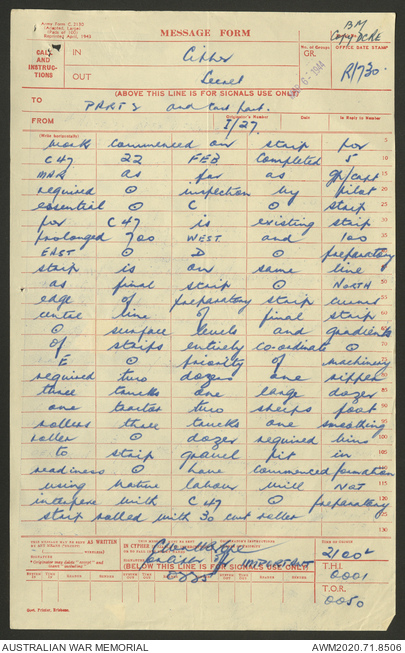 Army Form C.2130
MESSAGE FORM
BM
Copy DCRE
CALL AND INSTRUCTIONS
IN Cipher
No. of Groups GR.
OFFICE DATE STAMP
OUT Secret
R/730
(ABOVE THIS LINE IS FOR SIGNALS USE ONLY)
TO PARTS and
FROM
Originator's Number
In Reply to Number
I/27.
(Write horizontally)
work commenced on strip for
C47 22 FEB completed 5
MAR as far as gr/capt
required O inspection by pilot
essential O C O strip
for C47 is existing strip
prolonged 700 WEST and 100
EAST O D O preparatory
strip is on same line
as final strip O NORTH
edge of preparatory strip
centre line of final strip
O surface levels and gradients
of strips entirely co-ordinate O
E O priority of machinery
required two dozers one ripper
three trucks one large dozer
one tractor two sheeps foot
rollers three trucks one smoothing
roller O dozer required
to strip gravel pit in
readiness O have commenced formation
using native labour will NOT
interfere with C47 O preparatory
strip rolled with 30 cwt roller
5
10
15
20
25
30
35
40
45
50
55
60
65
70
75
80
85
90
95
100
105
110
115
120
125
130
IMPORTANT
2100
(BELOW THIS LINE IS FOR SIGNALS USE ONLY)
T.H.I.
0001
T.O.R.
0050
Govt. Printer, Brisbane.
AUSTRALIAN WAR MEMORIAL
AWM2020.71.8506